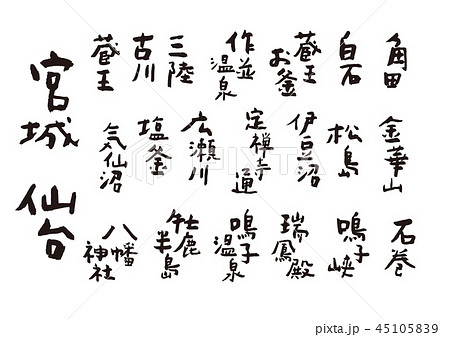 角田
白石
蔵王
お釜
作並
温泉
三陸
古川
蔵王
金華山
松島
伊豆沼
定禅寺
通
広瀬川
塩釜
気仙沼
石巻
鳴子
峡
瑞鳳殿
鳴子
温泉
牡鹿
半島
八幡
神社
宮城
仙台
PIXTA
pixta.jp - 45105839